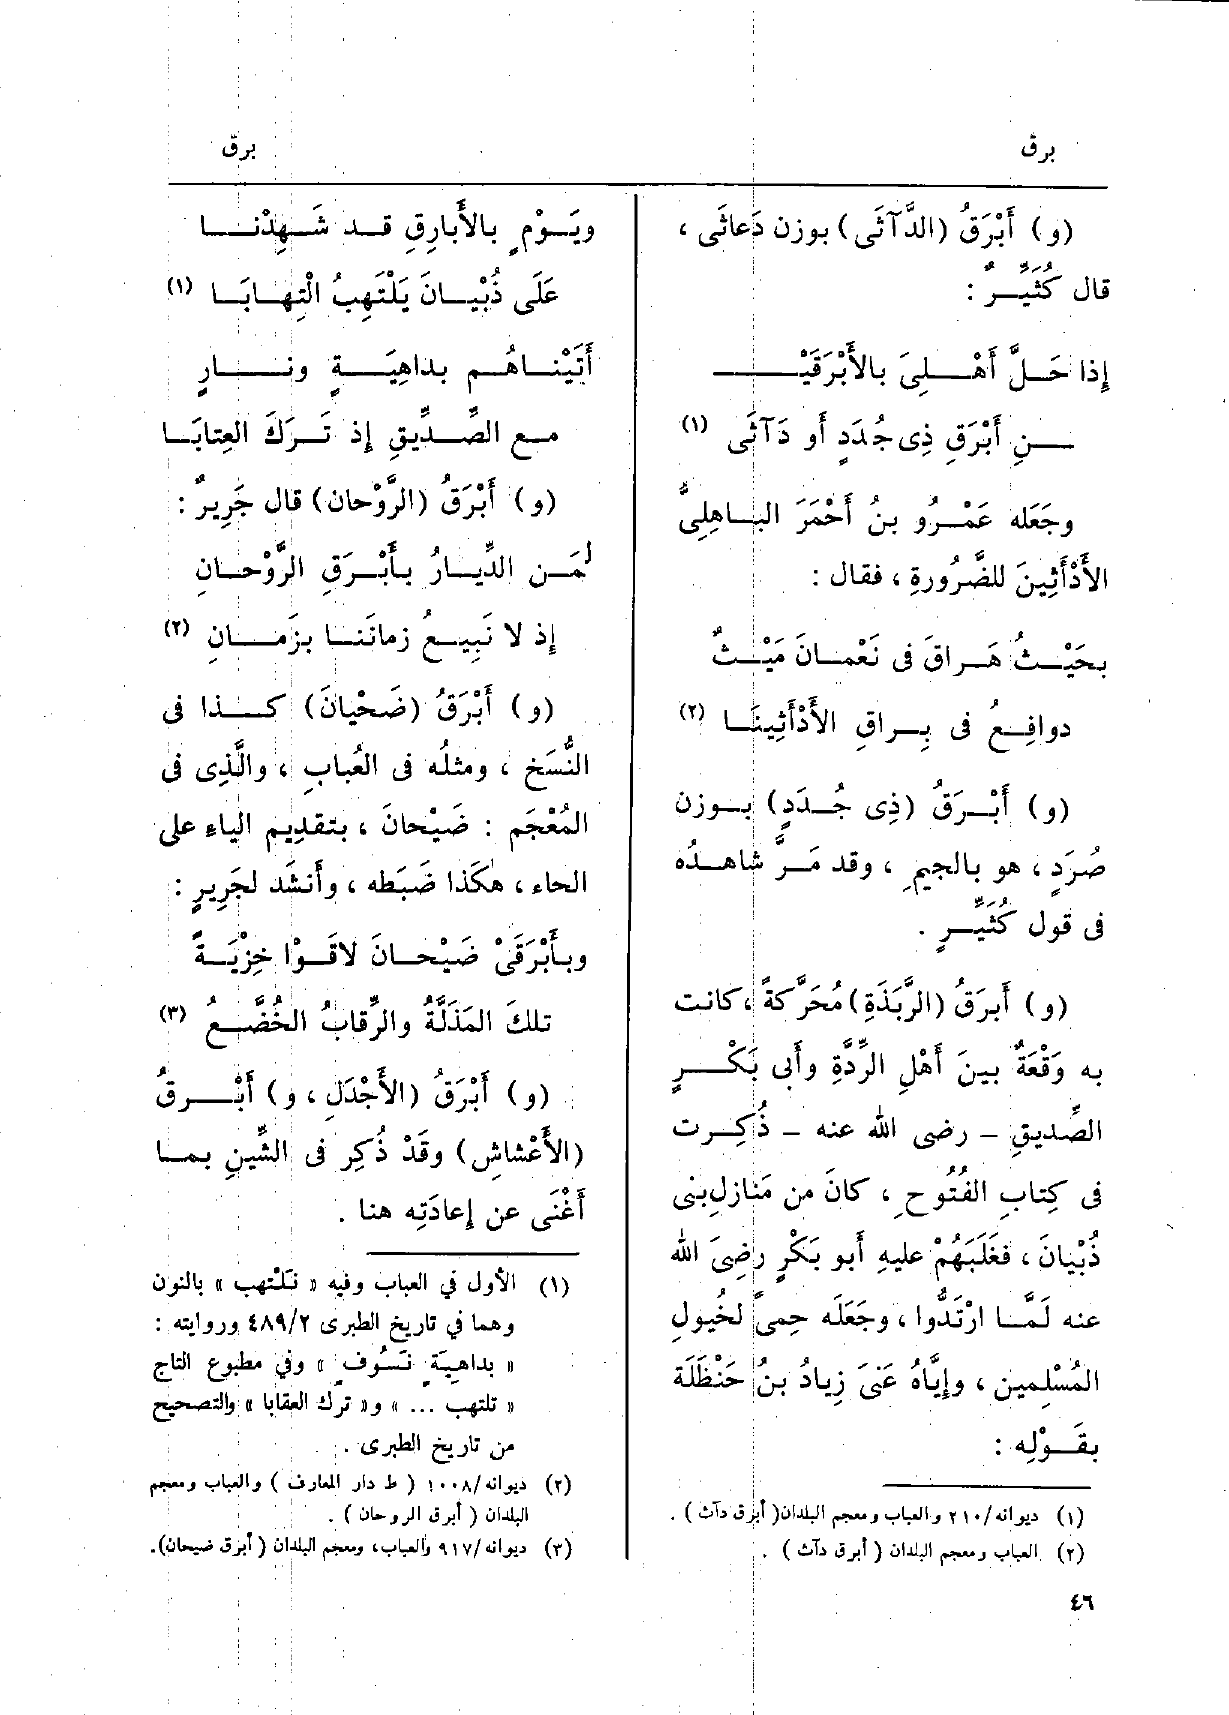 برق
برق
(و) أَبْرَقُ (الدَّآثَى) بوزن دَعاثَى ،
قال كُثَيِّرٌ :
إِذا حَلَّ أَهْلِىَ بالأَبْرَقَيْـ
ـنِ أَبْرَقِ ذِى جُدَدٍ أو دَآثَى (١)
وجَعَله عَمْرُو بنُ أَحْمَرَ الباهِلِىُّ
الأَدْأَثِينَ للضَّرُورةِ ، فقال :
بحَيْثُ هَراقَ فى نَعْمانَ مَيْثٌ
دوافِعُ فى بِراقِ الأَدْأَثِينَا (٢)
(و) أَبْرَقُ (ذِى جُدَدٍ) بوزن
صُرَدٍ ، هو بالجيمِ ، وقد مَرَّ شاهدُه
فى قول كُثَيِّرٍ .
(و) أَبرَقُ (الرَّبَذَةِ) مُحَرَّكةً ، كانت
به وَقْعَةٌ بينَ أَهْلِ الرِّدَّةِ وأَبى بَكْرٍ
الصِّديقِ – رضى الله عنه – ذُكِرت
فى كِتابِ الفُتُوحِ ، كانَ من مَنازِلِ بنى
ذُبْيانَ ، فغَلَبَهُمْ عليهِ أبو بَكْرٍ رضِىَ الله
عنه لَمَّا ارْتَدُّوا ، وجَعَلَه حِمىً لخُيولِ
المُسْلِمين ، وإِيَّاهُ عَنىَ زِيادُ بنُ حَنْظَلَةَ
بقَوْلِه :
(١) ديوانه/٢١٠ والعباب ومعجم البلدان( أبرق دآث ) .
(٢) العباب ومعجم البلدان ( أبرق دآث ) .
٤٦
ويَوْمٍ بالأَبارِقِ قد شَهِدْنا
عَلَى ذُبْيانَ يَلْتَهِبُ الْتِهابَا (١)
أَتَيْناهُم بداهِيَةٍ ونارٍ
مع الصِّدِّيقِ إِذ تَرَكَ العِتابَا
(و) أَبْرَقُ (الرَّوْحان) قال جَرِيرٌ :
لمَن الدِّيارُ بأَبْرَقِ الرَّوْحانِ
إِذ لا نَبِيعُ زمانَنا بزَمانِ (٢)
(و) أَبْرَقُ (ضَحْيانَ) كذا فى
النُّسَخ ، ومثلُه فى العُبابِ ، والَّذِى فى
المُعْجَم : ضَيْحانَ ، بتقدِيم الياءِ على
الحاء ، هٰكَذا ضَبَطه ، وأَنشَد لجَرِيرٍ :
وبأَبْرَقَىْ ضَيْحانَ لاقَوْا خِزْيَةً
تلكَ المَذَلَّةُ والرِّقابُ الخُضَّعُ (٣)
(و) أَبْرَقُ (الأَجْدَلِ ، و) أَبْرقُ
(الأَعْشاشِ) وقَدْ ذُكِر فى الشِّينِ بما
أَغْنَى عن إِعادَتِه هنا .
(١) الأول في العباب وفيه « نَلْتهب » بالنون
وهما في تاريخ الطبرى ٤٨٩/٢ وروايته :
« بداهِيَةٍ نَسُوفٍ » وفي مطبوع التاج
« تلتهب ... » و« ترك العقابا » والتصحيح
من تاريخ الطبرى .
(٢) ديوانه/١٠٠٨ ( ط دار المعارف ) والعباب ومعجم
البلدان ( أبرق الروحان ) .
(٣) ديوانه/٩١٧ والعباب، ومعجم البلدان ( أبرق ضيحان).